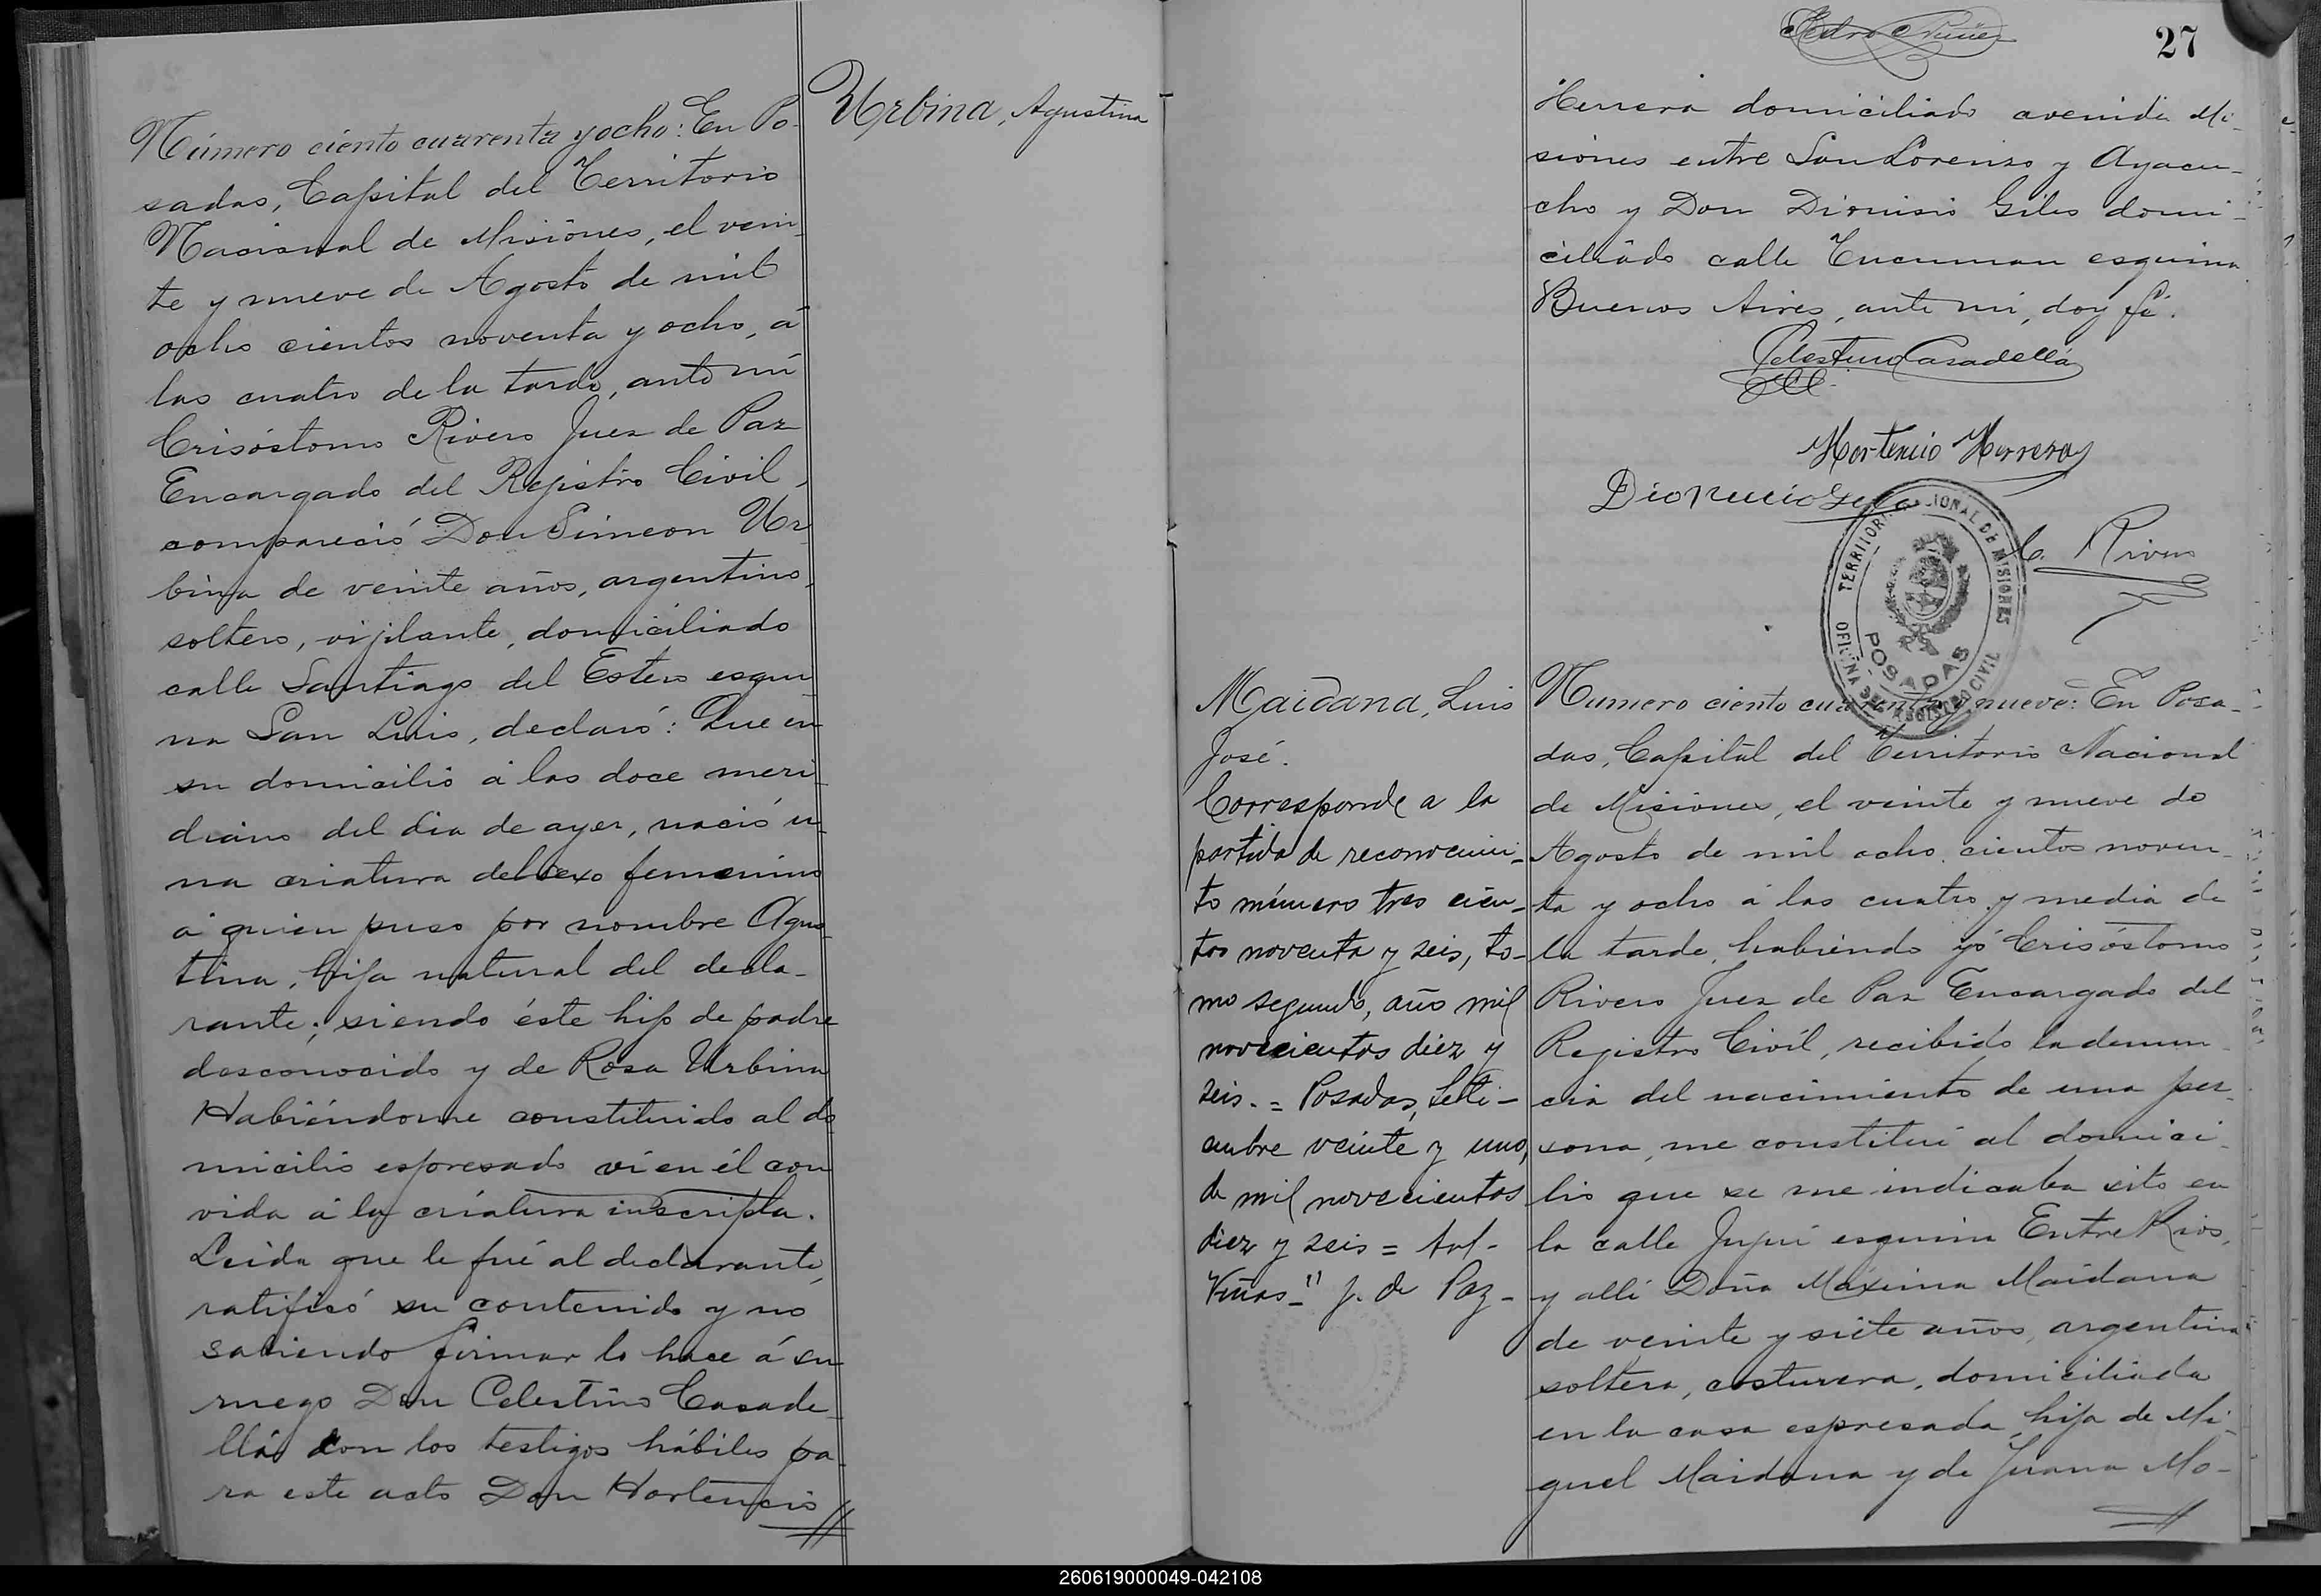 Número ciento cuarenta y ocho: En Po-
sadas, Capital del Territorio
Nacional de Misiones, el vein-
te y nueve de Agosto de mil
ocho cientos noventa y ocho, á
las cuatro de la tarde, ante mi
Crisóstomo Rivero Juez de Paz
Encargado del Registro Civil,
compareció Don Simeon Ur-
bina de veinte años, argentino,
soltero, vijilante, domiciliado
calle Santiago del Estero esqui-
na San Luis, declaró: Que en
su domicilio á las doce meri-
diano del dia de ayer, nació u-
na criatura del sexo femenino
á quien puso por nombre Agus-
tina, hija natural del decla-
rante; siendo éste hijo de padre
desconocido y de Rosa Urbina
Habiéndome constituido al do-
micilio espresado vi en él con
vida á la criatura inscripta.
Leida que le fué al declarante,
ratificó su contenido y no
sabiendo firmar lo hace á su
ruego Don Celestino Casade-
llá con los testigos hábiles pa-
ra este acto Don Hortencio
Urbina, Agustina
Pedro Nuñez
27
Herrera domiciliado avenida Mi-
siones entre San Lorenzo y Ayacu-
cho y Don Dionisio Giles domi-
ciliado calle Tucuman esquina
Buenos Aires, ante mi, doy fé.
Celestino Casadellá
Hortencio Herrera
Dionicio
C. Rivero
TERRITORIO NACIONAL DE MISIONES
POSADAS
OFICINA DEL REGISTRO CIVIL
Maidana, Luis
José.
Corresponde a la
partida de reconocimi-
to número tres cien-
tos noventa y seis, to-
mo segundo, año mil
novecientos diez y
seis. = Posadas, Seti-
embre veinte y uno,
de mil novecientos
diez y seis =
Viñas - J. de Paz -
Numero ciento cuarenta y nueve: En Posa-
das, Capital del Territorio Nacional
de Misiones, el veinte y nueve de
Agosto de mil ocho cientos noven-
ta y ocho á las cuatro y media de
la tarde, habiendo yó Crisóstomo
Rivero Juez de Paz Encargado del
Registro Civil, recibido la denun-
cia del nacimiento de una per-
sona, me constitui al domici-
lio que se me indicaba sito en
la calle Jujui esquina Entre Rios,
y alli Doña Máxima Maidana
de veinte y siete años, argentina
soltera, costurera, domiciliada
en la casa espresada, hija de Mi-
guel Maidana y de Juana Mo-
260619000049-042108